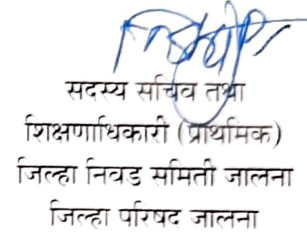 सदस्य सचिव तथा
शिक्षणाधिकारी (प्राथमिक)
जिल्हा निवड समिती जालना
जिल्हा परिषद जालना